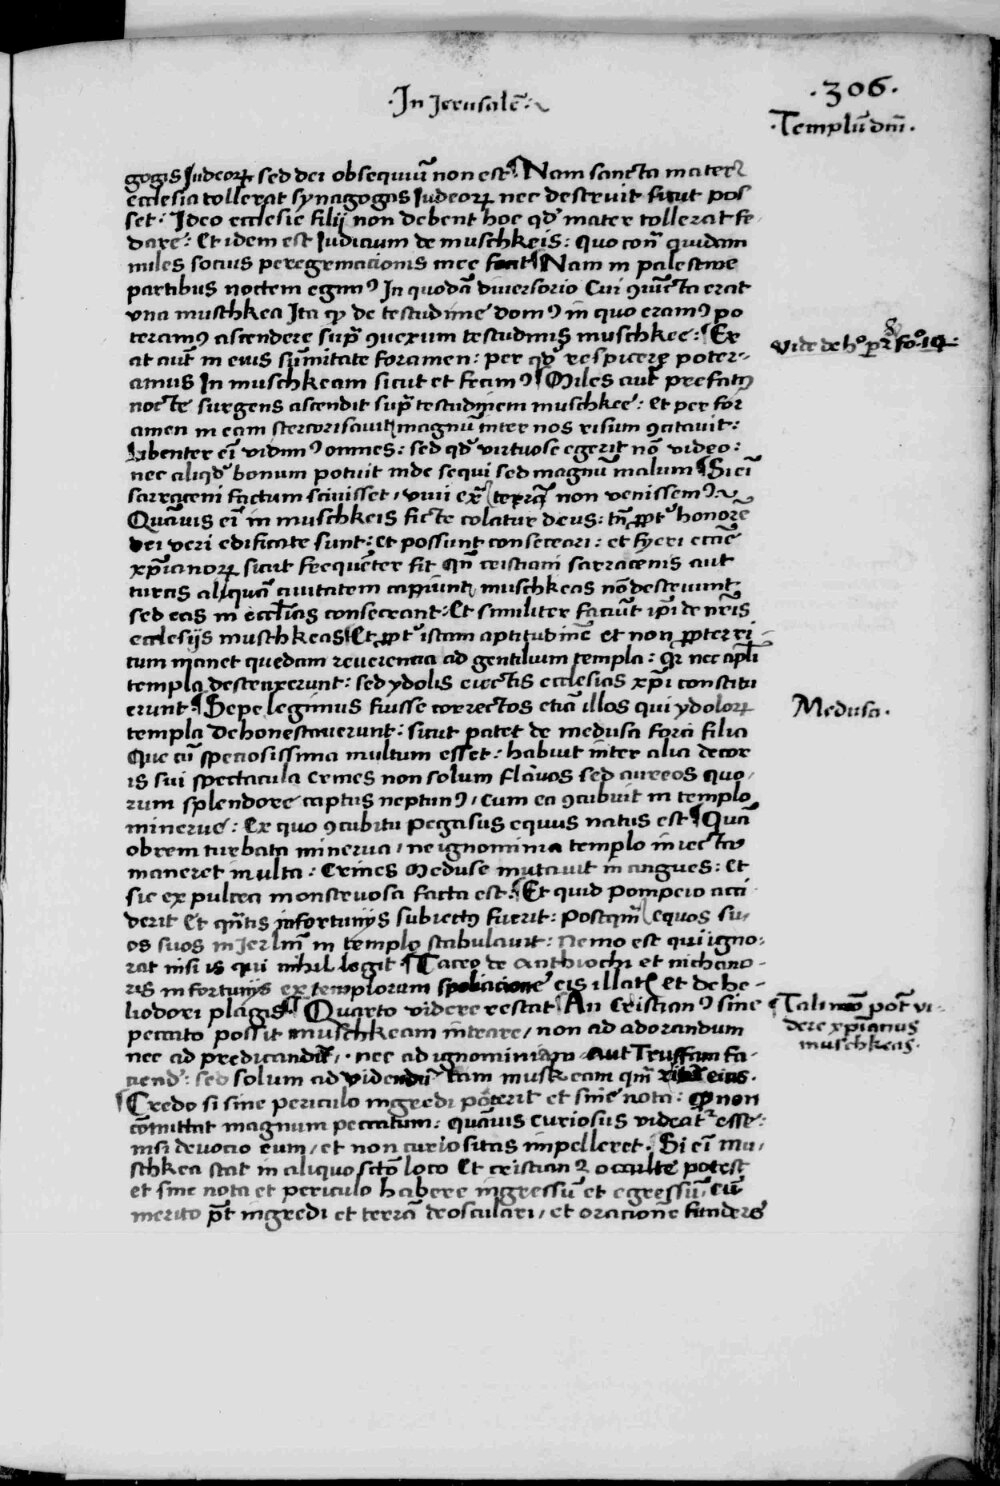 ·In Jerusalē·
·306·
·Templū dm̄·
gogis Judeoꝝ sed dei obsequiū non est ¶ Nam sancta mater
ecclesia tollerat synagogas Judeoꝝ nec destruit sicut pos
set· Ideo ecclesie filij non debent hoc qđ mater tollerat fe
dare: Et idem est Judicium de muschkeis: Quo con̄ quidam
miles socius peregrinacionis mee fecit ¶ Nam in palestine
partibus noctem egimꝰ In quodā diuersorio Cui ꝯiūcta erat
vna muschkea Ita ꝙ de testudine domꝰ in quo eramꝰ po
teramꝰ ascendere sup̄ ꝯuexum testudinis muschkee: ¶ Er
at aut̄ in eius sūmitate foramen: per qđ respicere poter-
amus In muschkeam sicut et fecimꝰ ¶ Miles aut̄ prefatꝰ
nocte surgens ascendit sup̄ testudinem muschkee: et per for
amen in eam stercorisauit magnū inter nos risum ꝯcitauit:
Libenter ei vidimꝰ omnes: sed qđ virtuose egerit nō video:
nec aliqđ bonum potuit inde sequi sed magnū malum ¶ Si eī
sarraceni factum sciuisset / viui ex terra non venissemꝰ
Quāuis eī in muschkeis ficte colatur deus: tn̄ ꝓptꝰ honorē
dei veri edificate sunt: et possunt consecrari: et fyeri eccīe
xp̄ianoꝝ sicut frequēter fit Qn̄ cristiani sarracenis aut
turcis aliquā ciuitatem capiunt muschkeas nō destruunt
sed eas in eccl̄ias consecrant: Et similiter faciūt ip̄i de nr̄is
ecclesijs muschkeas ¶ Et ꝓptꝰ istam aptitudinē et non ꝓpter ri-
tum manet quedam reuerencia ad gentilium templa: Qr̄ nec apl̄i
templa destruxerunt: sed ydolis eiectis ecclesias xp̄i constitu
erunt ¶ Sepe legimus fuisse correctos etiā illos qui ydoloꝝ
templa dehonestauerunt: sicut patet de medusa forci filia
Que cū speciosissima multum esset: habuit inter alia decor
is sui spectacula Crines non solum flauos sed aureos quo/
rum splendore captus neptunꝰ / cum ea ꝯcubuit in templo
minerue: Ex quo ꝯcubitu pegasus equus natus est ¶ Quā
obrem turbata minerua / ne ignominia templo iniecta
maneret in vlta: Crines Meduse mutauit in angues: et
sic ex pulcra monstruosa facta est: ¶ Et quid Pompeio acci
derit Et qn̄tis infortunijs subiectꝰ fuerit: Postqm̄ equos su/
os suos in Jerl̄m in templo stabulauit: Nemo est qui igno:
rat nisi is qui nihil legit ¶ Taceo de Anthiochi et nichano-
ris infortunijs ex templorum spoliacione eis illatis et de he-
liodori plagis ¶ Quarto videre restat ¶ An Cristianꝰ sine
peccato possit muschkeam intrare / non ad adorandum
nec ad predicandū / · nec ad ignominiam aut Truffam fa-
ciend: sed solum ad videndū tam muskeam qm̄ ritū eius·
¶ Credo si sine periculo ingredi poterit et sine nota: ꝙ non
cōmittat magnum peccatum: quāuis curiosus videatᷣ esse:
nisi deuocio eum / et non curiositas impelleret· Si eī mu/
schkea stat in aliquo sct̄o loco Et cristianꝰ occulte potest
et sine nota et periculo habere ingressū et egressū / cū
merito pt̄ ingredi et terrā deosculari / et oracione fundere
vide de hꝰ fo· 14·
Medusa·
¶ Talimō pot̄ vi-
dere xp̄ianus
muschkeas·